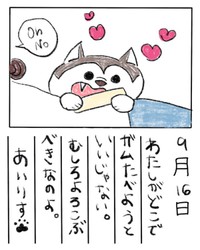 Oh No
9月16日
わたしがどこで
ガムたべようと
いいじゃない。
むしろよろこぶ
べきなのよ。
あいりす